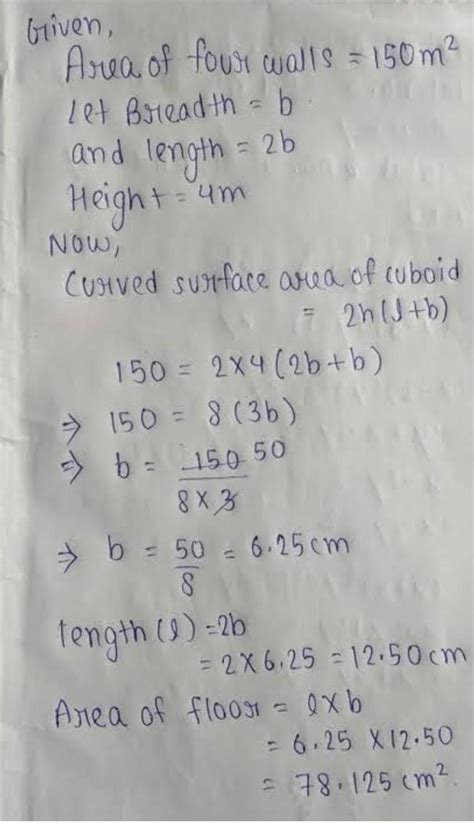 Given,
Area of four walls = 150m²
Let Breadth = b
and length = 2b
Height = 4m
Now,
Curved surface area of cuboid
= 2h(l+b)
150 = 2×4(2b+b)
⇒ 150 = 8(3b)
⇒ b = 150 50
8×3
⇒ b = 50/8 = 6.25cm
length (l) = 2b
= 2×6.25 = 12.50cm
Area of floor = l×b
= 6.25 ×12.50
= 78.125 cm².